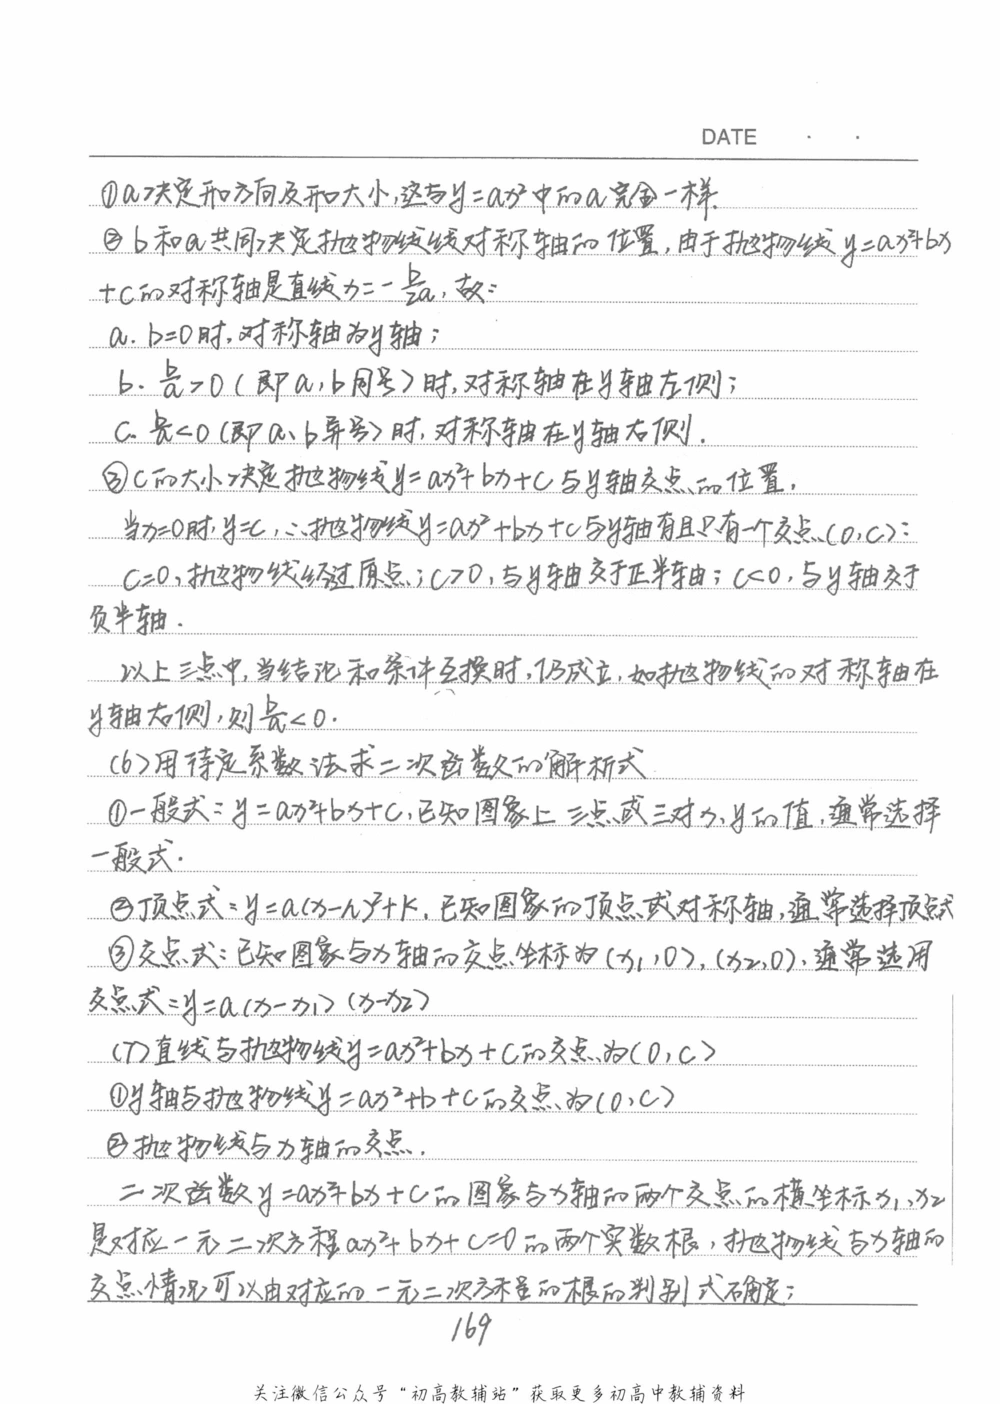 DATE · ·
①a决定开口方向及开口大小,这与y=ax²中的a完全一样.
②b和a共同决定抛物线线对称轴的位置,由于抛物线y=ax²+bx
+c的对称轴是直线x=-b/2a,故:
a. b=0时,对称轴为y轴;
b. b/a>0(即a,b同号)时,对称轴在y轴左侧;
c. b/a<0(即a、b异号)时,对称轴在y轴右侧.
③c的大小决定抛物线y=ax²+bx+c与y轴交点的位置,
当x=0时,y=c,∴抛物线y=ax²+bx+c与y轴有且只有一个交点(0,c):
c=0,抛物线经过原点;c>0,与y轴交于正半轴;c<0,与y轴交于
负半轴.
以上三点中,当结论和条件互换时,仍成立,如抛物线的对称轴在
y轴右侧,则b/a<0.
(6)用待定系数法求二次函数的解析式
①一般式:y=ax²+bx+c,已知图象上三点或三对x,y的值,通常选择
一般式.
②顶点式:y=a(x-h)²+k,已知图象的顶点或对称轴,通常选择顶点式
③交点式:已知图象与x轴的交点坐标为(x₁,0),(x₂,0),通常选用
交点式:y=a(x-x₁)(x-x₂)
(7)直线与抛物线y=ax²+bx+c的交点为(0,c)
①y轴与抛物线y=ax²+b+c的交点为(0,c)
②抛物线与x轴的交点.
二次函数y=ax²+bx+c的图象与x轴的两个交点的横坐标x₁、x₂
是对应一元二次方程ax²+bx+c=0的两个实数根,抛物线与x轴的
交点情况可以由对应的一元二次方程的根的判别式确定:
169
关注微信公众号“初高教辅站”获取更多初高中教辅资料